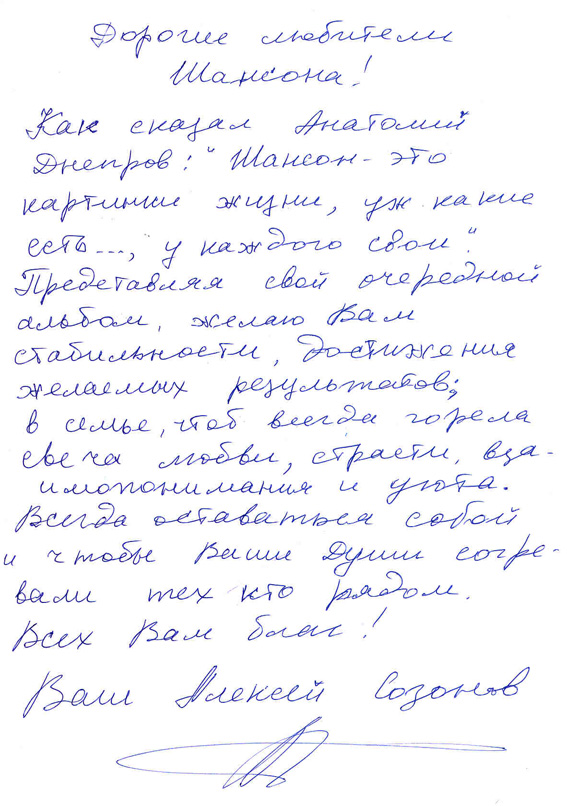 Дорогие любители
Шансона!
Как сказал Анатолий
Днепров: "Шансон - это
картинки жизни, уж какие
есть..., у каждого свои".
Представляя свой очередной
альбом, желаю Вам
стабильности, достижения
желаемых результатов;
в семье, чтоб всегда горела
свеча любви, страсти, вза-
имопонимания и уюта.
Всегда оставаться собой
и чтобы Ваши Души согре-
вали тех кто рядом.
Всех Вам благ!
Ваш Алексей Созонов